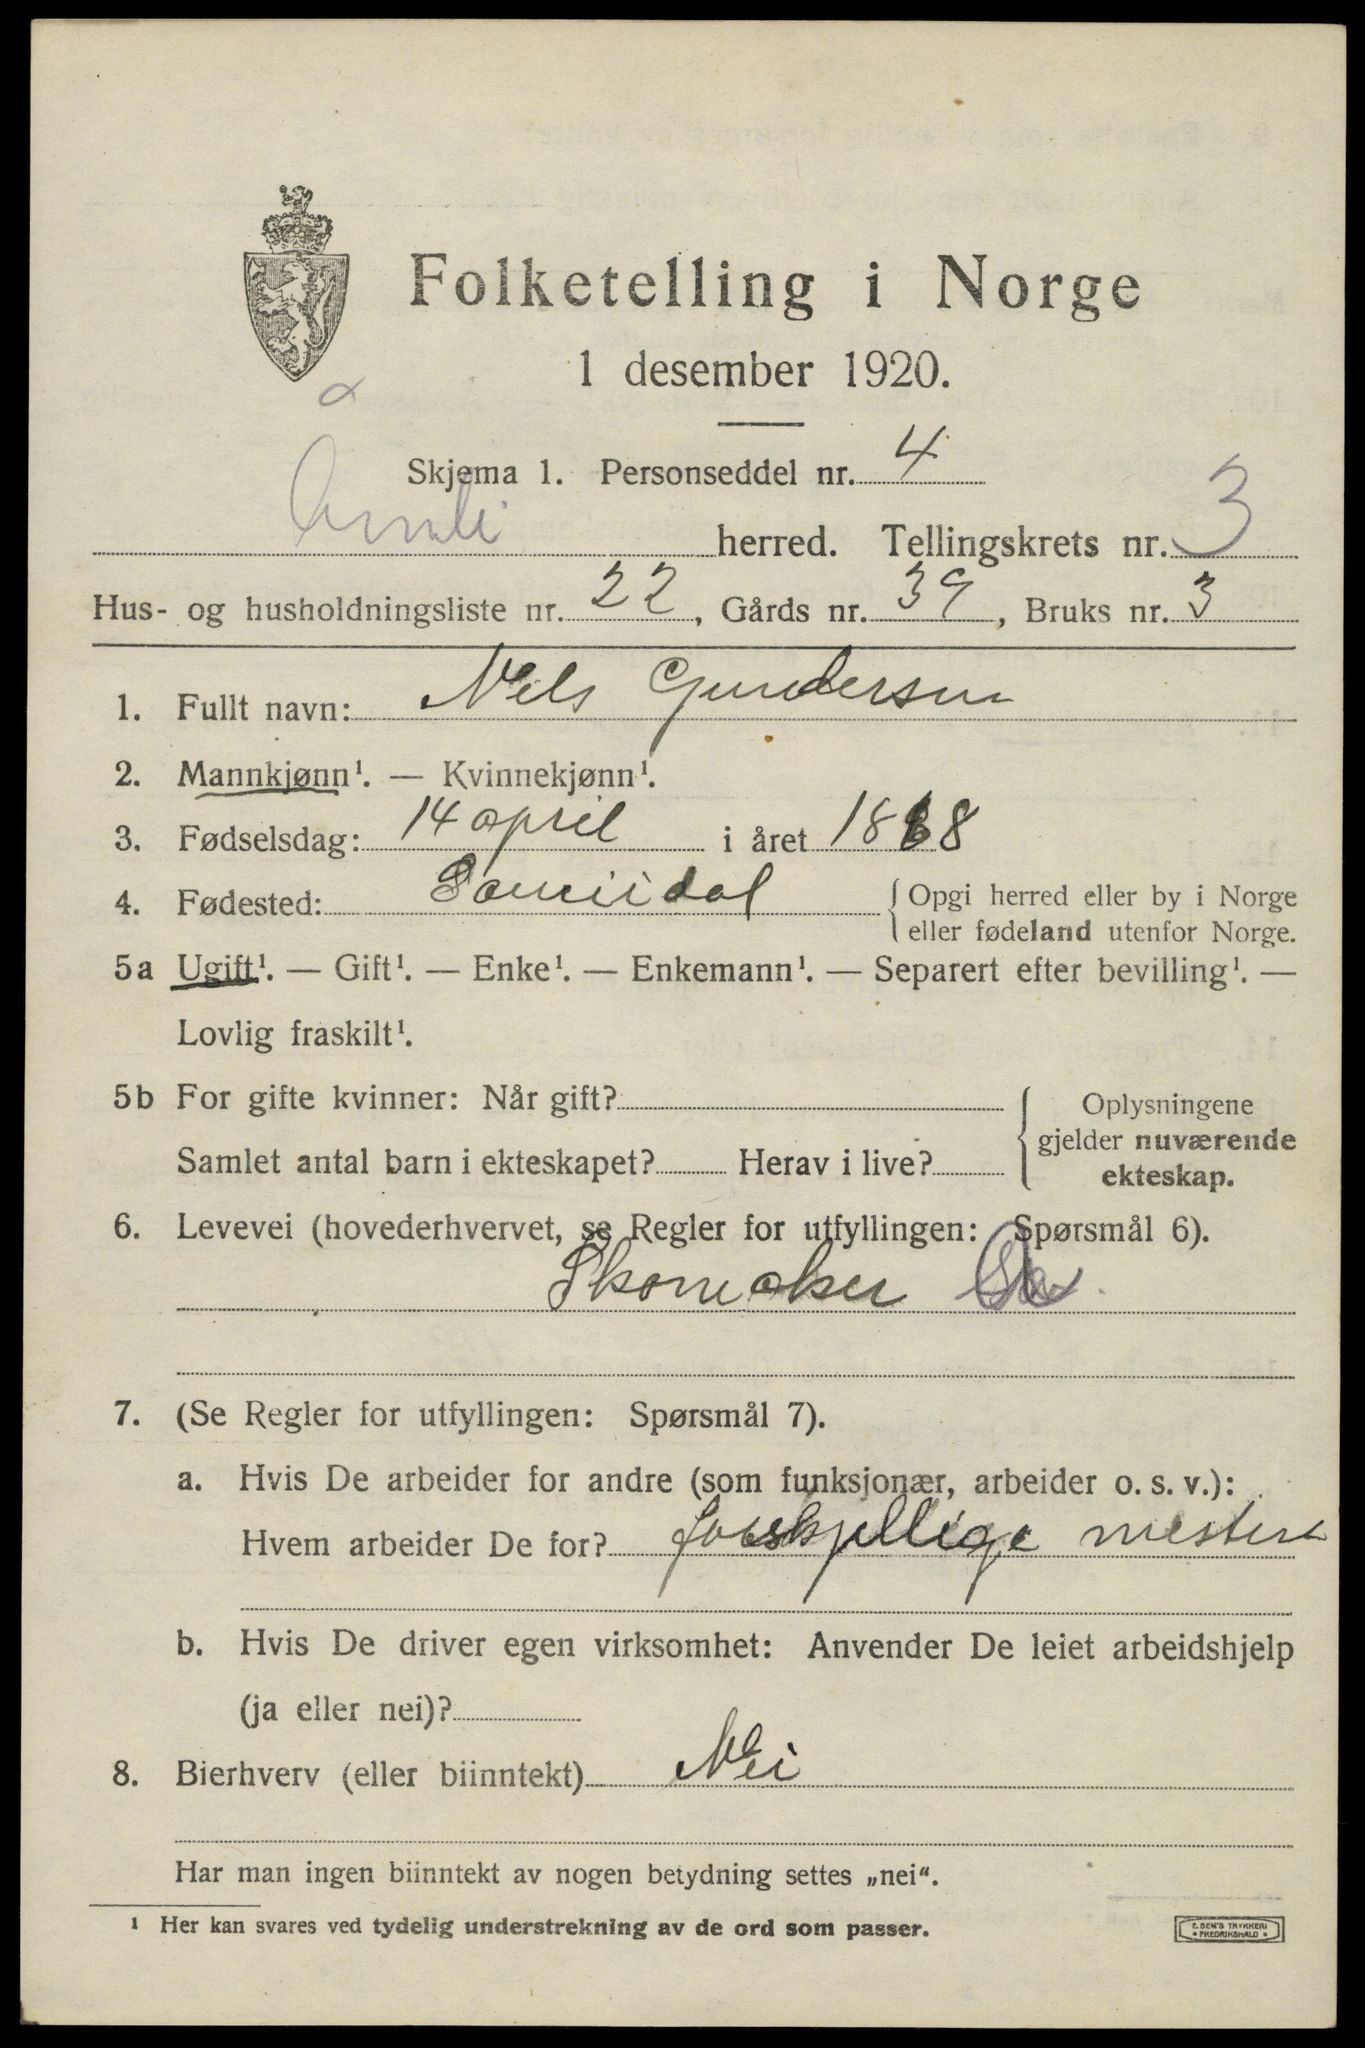 Folketelling i Norge
1 desember 1920.
Skjema 1. Personseddel nr. 4
Åmli herred. Tellingskrets nr. 3
Hus- og husholdningsliste nr. 22, Gårds nr. 39, Bruks nr. 3
1. Fullt navn: Nels Gundersen
2. Mannkjønn¹. — Kvinnekjønn¹.
3. Fødselsdag: 14 april i året 1868
4. Fødested: { Opgi herred eller by i Norge
eller fødeland utenfor Norge.
5a Ugift¹. — Gift¹. — Enke¹. — Enkemann¹. — Separert efter bevilling¹. —
Lovlig fraskilt¹.
5b For gifte kvinner: Når gift? { Oplysningene
gjelder nuværende
Samlet antal barn i ekteskapet? Herav i live?
ekteskap.
6. Levevei (hovederhvervet, se Regler for utfyllingen: Spørsmål 6).
Skomaker
7. (Se Regler for utfyllingen: Spørsmål 7).
a. Hvis De arbeider for andre (som funksjonær, arbeider o. s. v.):
Hvem arbeider De for? forskjellige mestere
b. Hvis De driver egen virksomhet: Anvender De leiet arbeidshjelp
(ja eller nei)?
8. Bierhverv (eller biinntekt) Nei
Har man ingen biinntekt av nogen betydning settes „nei“.
¹ Her kan svares ved tydelig understrekning av de ord som passer.
E. SEM'S TRYKKERI
* FREDRIKSHALD *